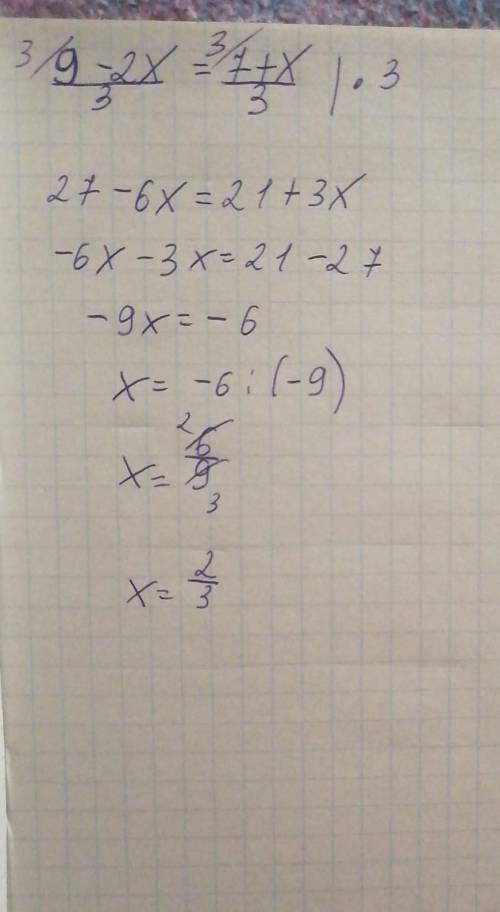 3/ 9 - 2x / 3 = 3/ 7 + x / 3 | · 3
27 - 6x = 21 + 3x
-6x - 3x = 21 - 27
-9x = -6
x = -6 : (-9)
x = 2 6/9 3
x = 2/3